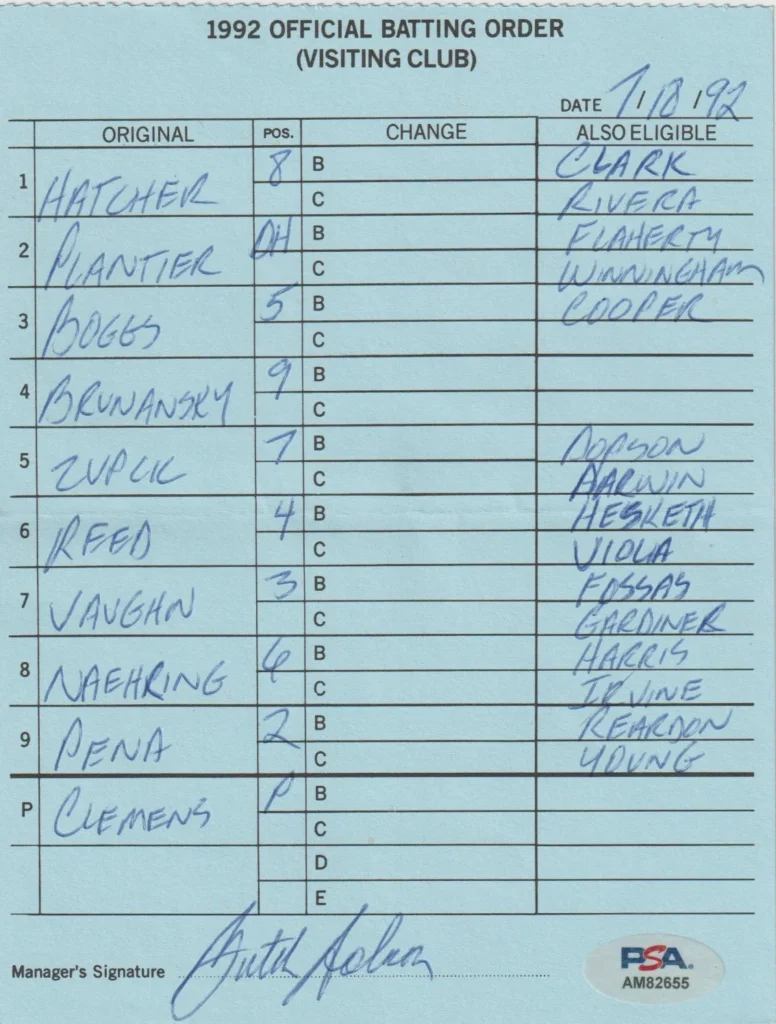 1992 OFFICIAL BATTING ORDER
(VISITING CLUB)
DATE 7/18/92
ORIGINAL POS. CHANGE ALSO ELIGIBLE
1 HATCHER 8 B CLARK
C RIVERA
2 PLANTIER DH B FLAHERTY
C WINNINGHAM
3 BOGGS 5 B COOPER
C
4 BRUNANSKY 9 B
C
5 ZUPCIC 7 B DOPSON
C DARWIN
6 REED 4 B HESKETH
C VIOLA
7 VAUGHN 3 B FOSSAS
C GARDINER
8 NAEHRING 6 B HARRIS
C IRVINE
9 PENA 2 B REARDON
C YOUNG
P CLEMENS P B
C
D
E
Manager's Signature Butch Hobson
PSA
AM82655